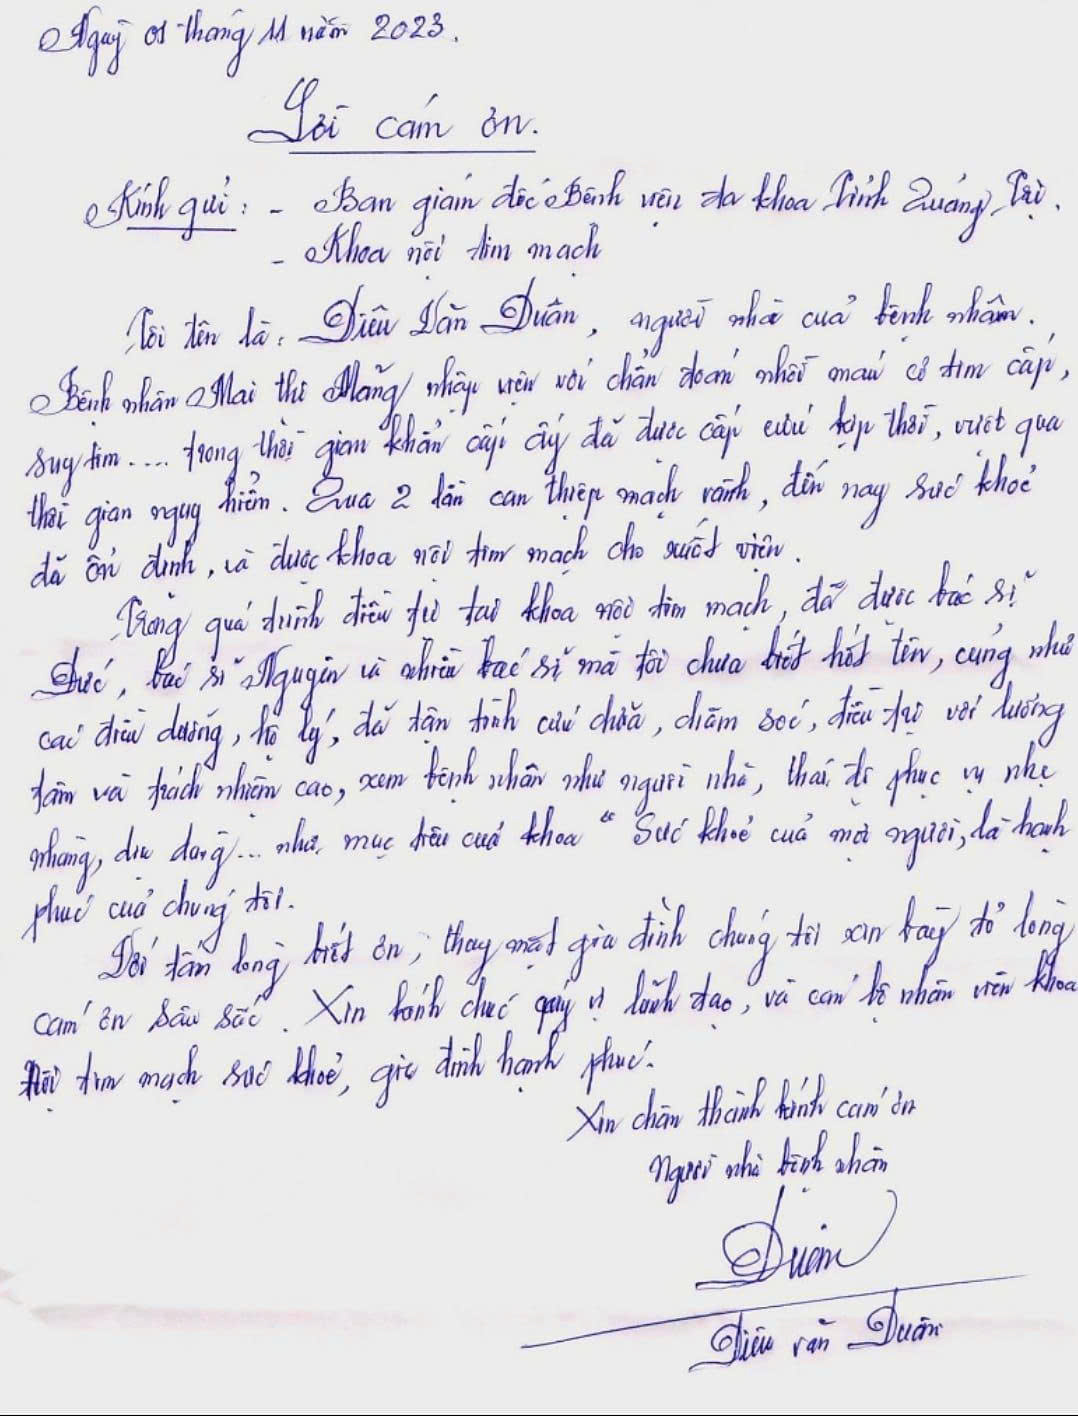 Ngày 01 tháng 11 năm 2023.
Lời cám ơn.
Kính gửi: - Ban giám đốc Bệnh viện đa khoa Tỉnh Quảng Trị.
- Khoa nội tim mạch
Tôi tên là: Diêu Văn Duân, người nhà của bệnh nhân.
Bệnh nhân Mai thị Mằng nhập viện với chẩn đoán nhồi máu cơ tim cấp,
suy tim.... trong thời gian khẩn cấp ấy đã được cấp cứu kịp thời, vượt qua
thời gian nguy hiểm. Qua 2 lần can thiệp mạch vành, đến nay sức khoẻ
đã ổn định, và được khoa nội tim mạch cho xuất viện.
Trong quá trình điều trị tại khoa nội tim mạch, đã được bác sĩ
Đức, bác sĩ Nguyên và nhiều bác sĩ mà tôi chưa biết hết tên, cũng như
các điều dưỡng, hộ lý, đã tận tình cứu chữa, chăm sóc, điều trị với lương
tâm và trách nhiệm cao, xem bệnh nhân như người nhà, thái độ phục vụ nhẹ
nhàng, dịu dàng... như mục tiêu của khoa "Sức khoẻ của mọi người, là hạnh
phúc của chúng tôi.
Với tấm lòng biết ơn, thay mặt gia đình chúng tôi xin bày tỏ lòng
cám ơn sâu sắc. Xin kính chúc quý vị lãnh đạo, và cán bộ nhân viên khoa
Nội tim mạch sức khoẻ, gia đình hạnh phúc.
Xin chân thành kính cám ơn
Người nhà bệnh nhân
Duân
Diêu văn Duân